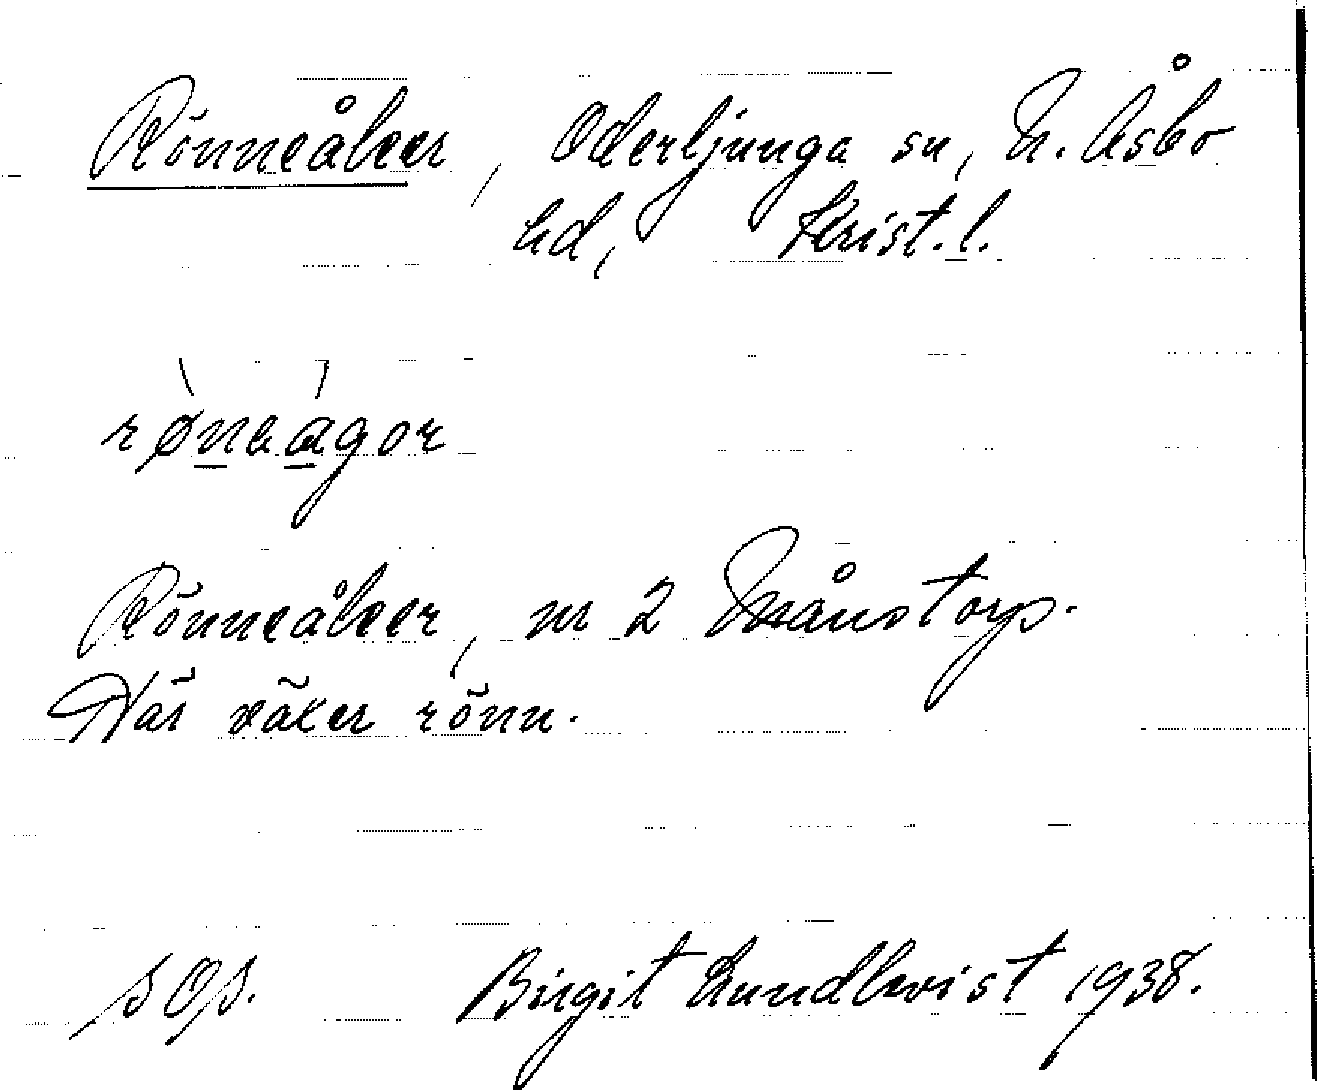 Rönneåker, Oderljunga sn, N. Åsbo
hd, Krist. l.
rønaagor
Rönneåker, nr 2 Månstorp.
Här växer rönn.
Birgit Lundkvist 1938.